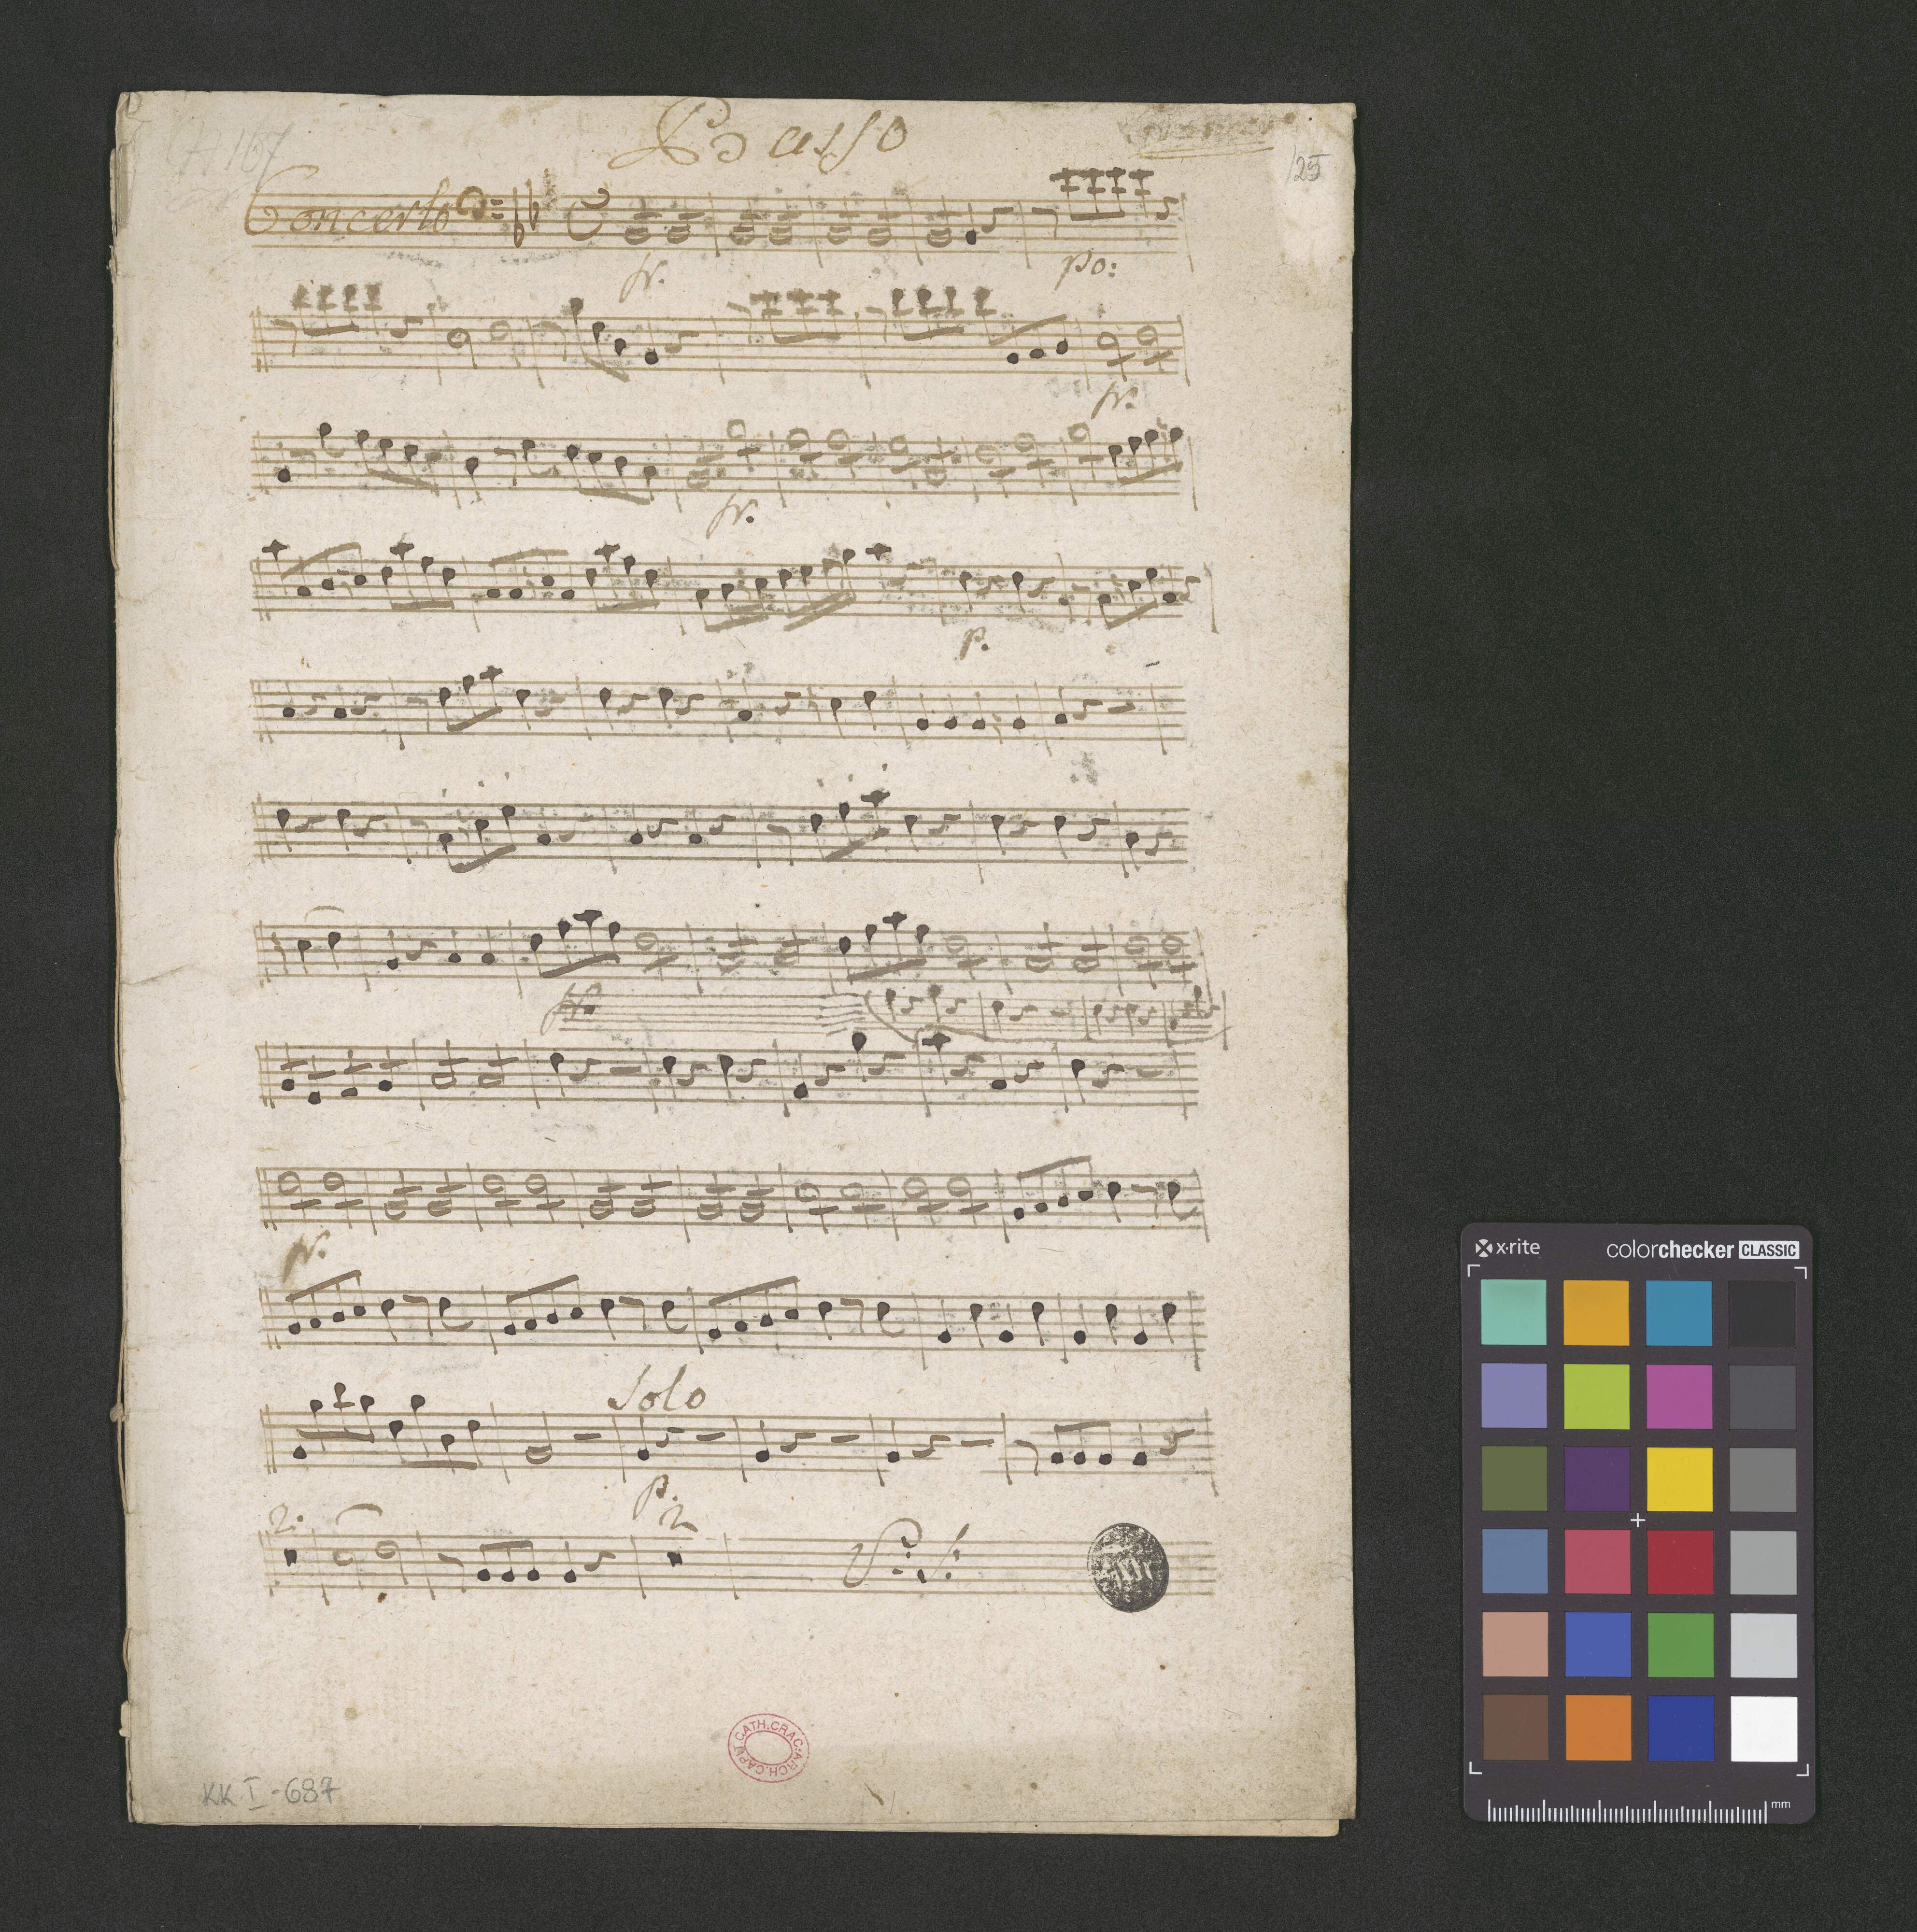 Basso
125
Concerto
fr.
po:
fr.
fr.
p.
fr.
fr.
Solo
p.
2.
2
V: S:
ARCH. CAPIT. CATH. CRAC.
KK I-687
x-rite
colorchecker CLASSIC
mm